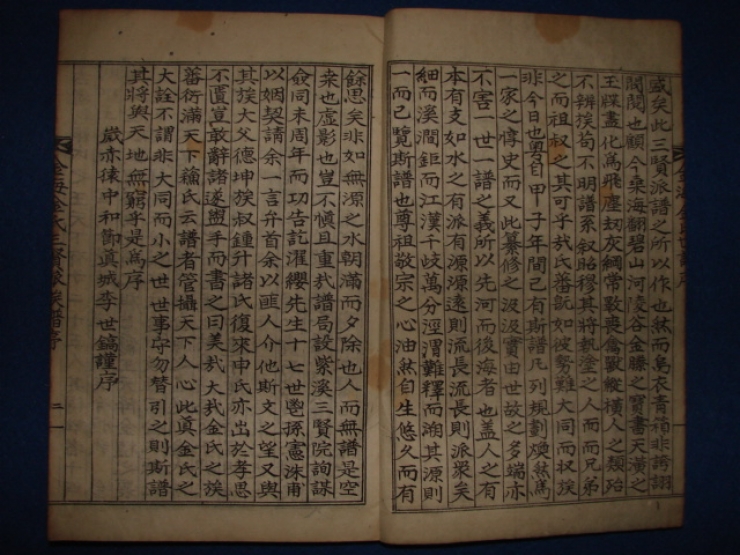 盛矣此三賢派譜之所以作也然而爲衣青箱非誇詡
閥閱也顧今桑海翻碧山河陵谷金縢之寶書天潢之
玉牒盡化爲飛塵劫灰綱常斁喪禽獸縱橫人之類殆
不辨矣苟不明譜系敍昭穆其將孰塗之人而而兄弟
之而祖叔之其可乎哉氏蕃訛如彼勢難大同而收族
非今日也粤自甲子年間已有斯譜凡列規劃煥然爲
一家之惇史而又此纂修之汲汲實由世故之多端亦
不害一世一譜之義所以先河而後海者也盖人之有
本有支如水之有派有源源遠則流長流長則派裂矣
細而溪澗鉅而江漢千歧萬分涇渭難釋而溯其源則
一而已覽斯譜也尊祖敬宗之心油然自生悠久而有
餘思矣非如無源之水朝滿而夕除也人而無譜是空
桒也虛影也豈不愼且重哉譜局設紫溪三賢院詢謀
僉同未周年而功告訖濯纓先生十七世胄孫憲洙甫
以姻契請余一言弁首余以匪人介他斯文之望又與
其族大父德坤族叔鍾升諸氏復來申氏亦出於孝思
不匱豈敢辭諸遂盥手而書之曰美哉大哉金氏之族
蕃衍滿天下蘓氏云譜者管攝天下人心此眞金氏之
大詮不謂非大同而小之世世事守勿替引之則斯譜
其將與天地無窮乎是爲序
歲亦猿中和節眞城李世鎬謹序
金海金氏三賢派族譜序
二